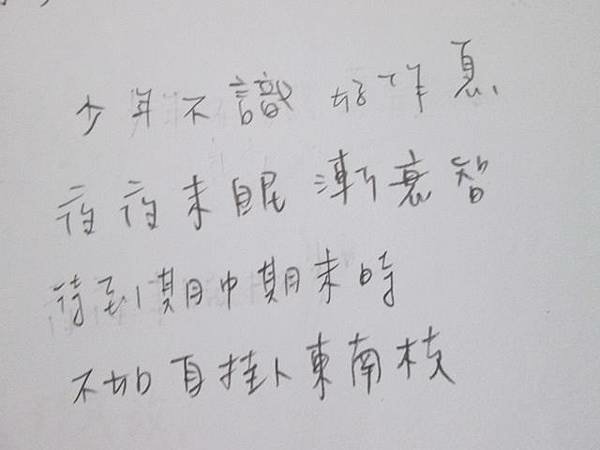 少年不識好作息
夜夜未眠漸衰智
待到期中期末時
不如自掛東南枝